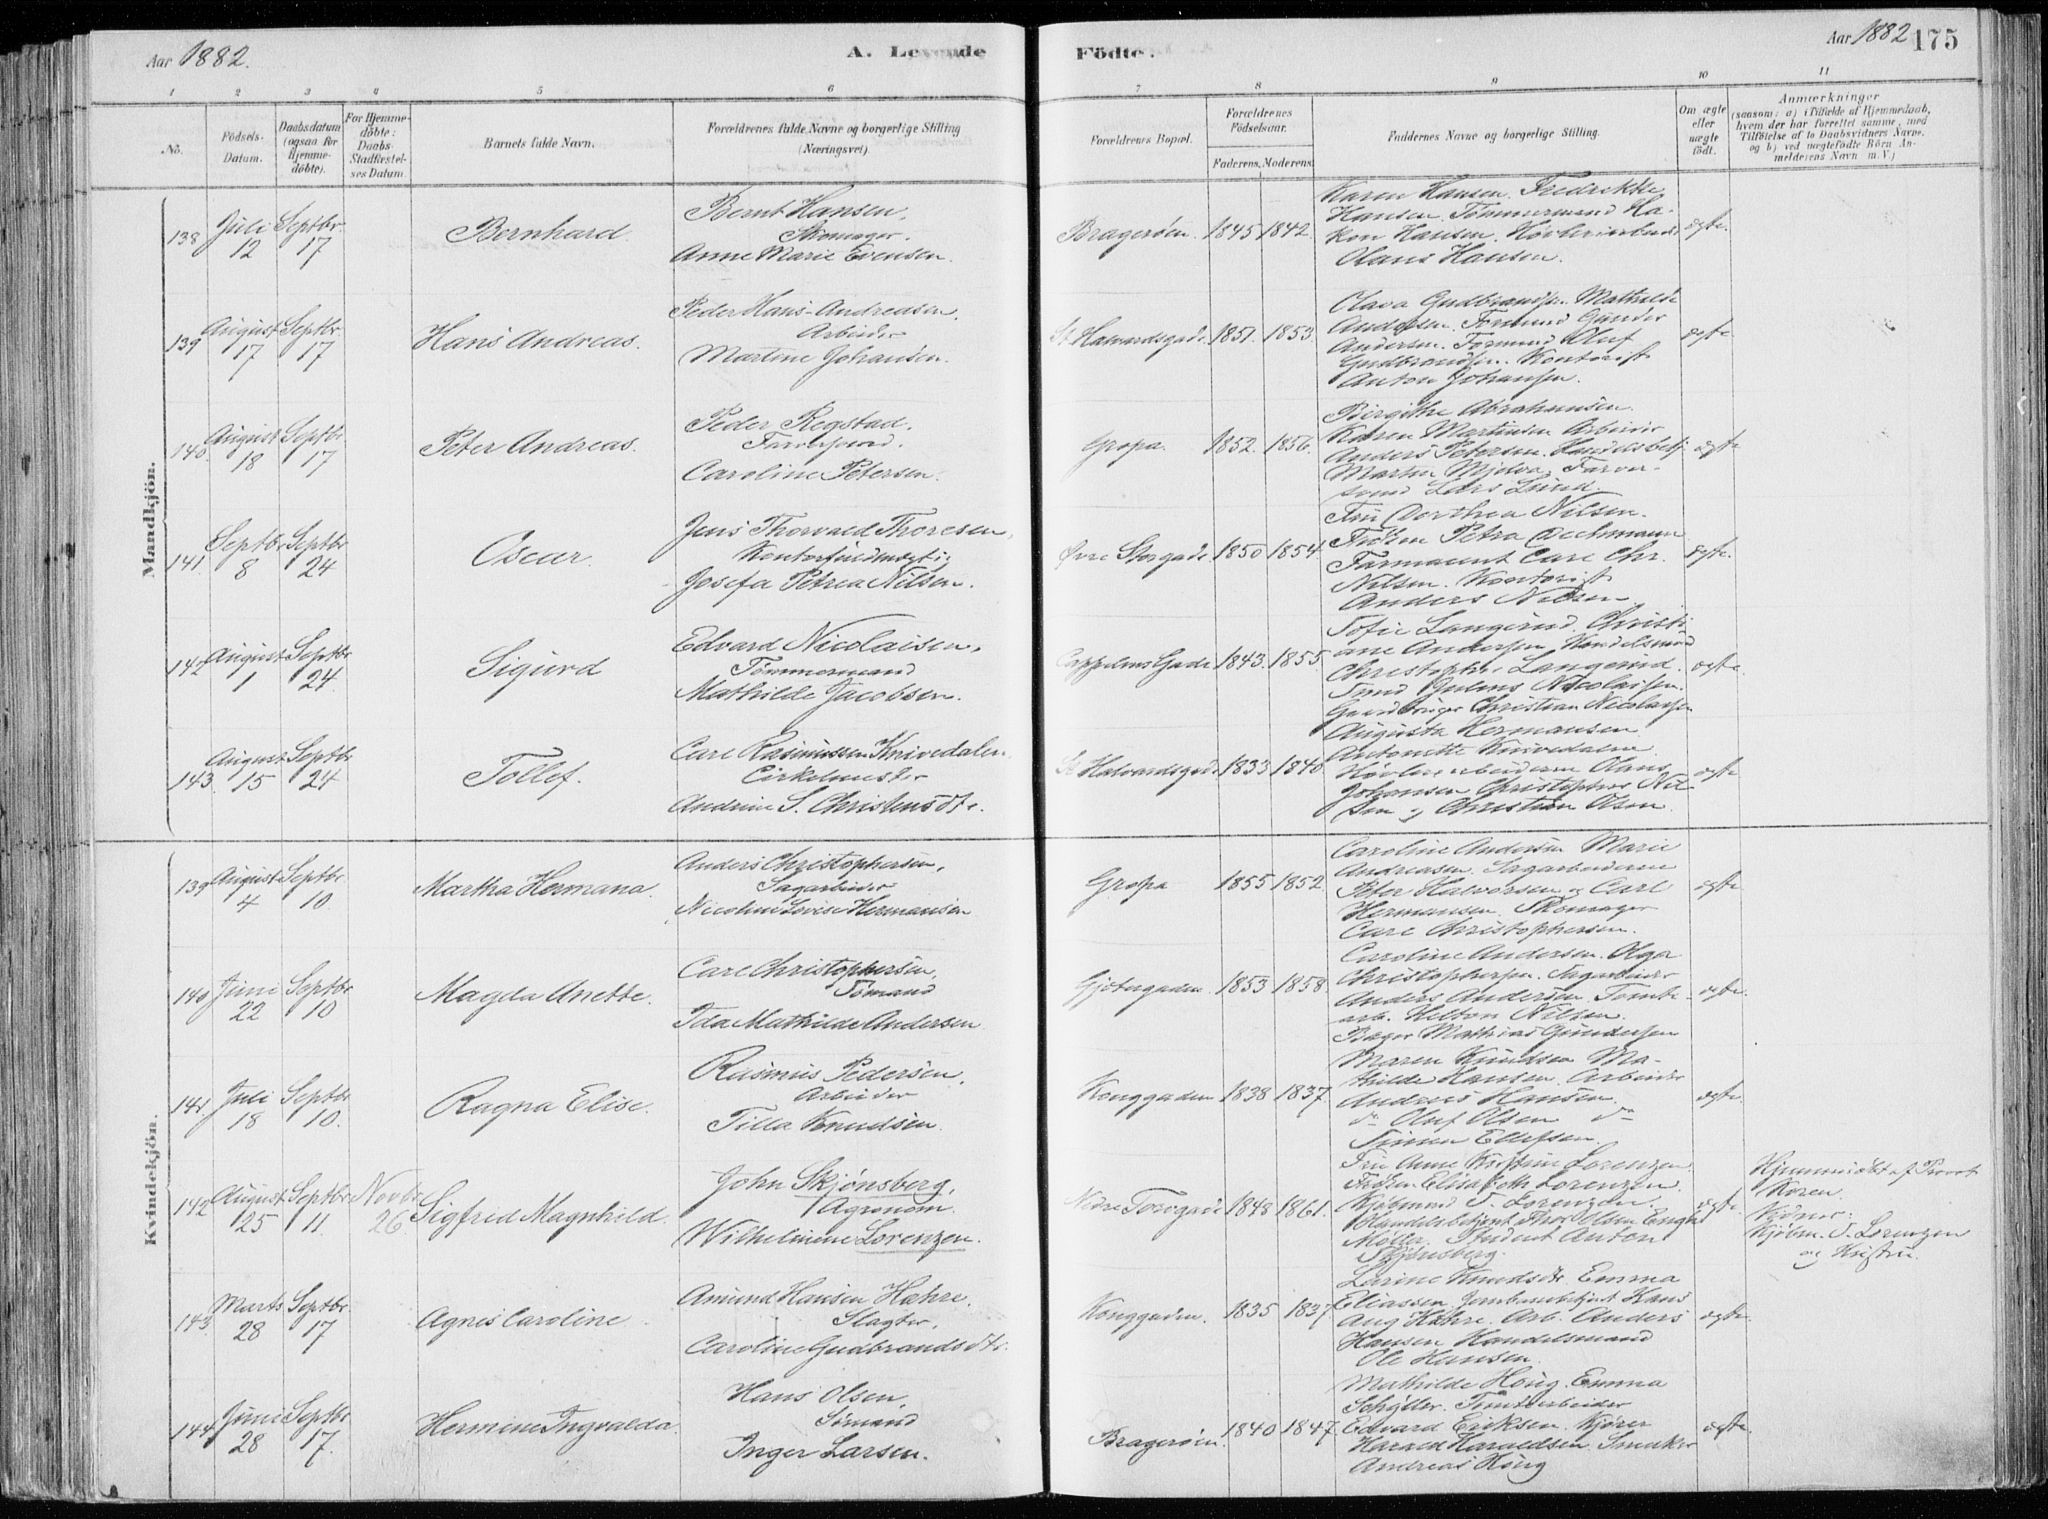 Aar 1882.
A. Levende Födte.
Aar 1882 175
1 2 3 4 5 6 7 8 9 10 11
No.
Födsels-Datum.
Daabsdatum (ogsaa for Hjemmedöbte).
For Hjemmedöbte: Daabs-Stadfæstelses Datum.
Barnets fulde Navn.
Forældrenes fulde Navne og borgerlige Stilling (Næringsvei).
Forældrenes Bopæl.
Forældrenes Födselsaar.
Faderens. Moderens.
Faddernes Navne og borgerlige Stilling.
Om ægte eller uægte födt.
Anmærkninger
(saasom: a) i Tilfælde af Hjemmedaab,
hvem der har forrettet samme, med
Tilföielse af to Daabsvidners Navne,
og b) ved uægtefödte Börn Anmelderens Navn m.V.)
Mandkjön.
138 Juli 12 Septbr. 17 Bernhard.
Bernt Hansen,
Skomager.
Anne Marie Evensen.
Bragerøen. 1845 1842
Karen Hansen. Fredrikke
Hansen. Tømmermand Ha-
kon Hansen. Høvleriarbeider
Olaus Hansen.
ægte.
139 August 17 Septbr. 17 Hans Andreas.
Peder Hans-Andreasen,
Arbeider
Martine Johansen.
St Halvardsgade. 1851. 1853.
Olava Gudbrandsen. Mathilde
Andersen. Formand Gunder
Andersen. Formand Oluf
Gudbrandsen. Kontorist
Anton Johansen.
ægte
140. August 18 Septbr. 17 Peter Andreas.
Peder Regstad,
Farversvend.
Caroline Petersen.
Gropa. 1852. 1856.
Birgithe Abrahamsen.
Karen Martinsen Arbeider
Anders Petersen. Handelsbetj.
Martin Mjelva, Farver-
svend Lars Lund.
ægte
141 Septbr 8 Septbr 24 Oscar.
Jens Thorvald Thoresen,
Kontorfuldmægtig
Josefa Petrea Nilsen.
Øvre Storgade 1850 1854.
Fru Dorthea Nilsen.
Frøken Petra Dechmann
Farmaceut Carl Chr.
Nilsen. Kontorist
Anders Nilsen
ægte.
142 August 1 Septbr 24. Sigurd
Edvard Nicolaisen,
Tømmermand
Mathilde Jacobsen.
Cappelens Gade 1843. 1855.
Sofie Langerud. Christi-
ane Andersen Handelsmand
Christopher Langerud.
Svend Julius Nicolaisen.
Gaardbruger Christian Nicolaysen
ægte.
143. August 15 Septbr 24 Tollef.
Carl Rasmussen Knivedalen.
Cirkelmester
Andrine S. Christensdtr.
St Halvardsgade 1833 1840
Augusta Hermansen
Antonette Knivedalen.
Høvleriarbeiderne Olaus
Johansen Christopher Nil-
sen og Christian Olsen.
ægte
Kvindekjön.
139 August 4 Septbr. 10. Martha Hermana.
Anders Christophersen,
Sagarbeider
Nicoline Lovise Hermansen
Gropa 1855 1852
Caroline Andersen Marie
Andreasen. Sagarbeiderne
Peter Halvorsen og Carl
Hermansen. Skomager
Carl Christophersen.
ægte
140 Juni 22 Septbr 10 Magda Anette.
Carl Christophersen,
Sømand
Ida Mathilde Andersen
Gjetergaden 1853 1858.
Caroline Andersen. Olga
Christophersen. Sagarbeider
Anders Andersen. Tomte-
arb. Helton Nilsen.
Bager Mathias Gundersen
ægte.
141. Juli 18 Septbr 10. Ragna Elise.
Rasmus Pedersen,
Arbeider
Tilla Knudsen.
Konggaden 1838 1837.
Maren Knudsen Ma-
thilde Hansen. Arbeider
Andreas Hansen.
do Oluf Olsen do
Simen Ellefsen.
ægte.
142 August 25 Septbr. 11. Novbr. 26. Sigfrid Magnhild.
John Skjønsberg,
Agronom.
Wilhelmine Lorenzen.
Nedre Torvgade 1848 1861.
Fru Anne Kirstine Lorenzen.
Frøken Elisabeth Lorenzen.
Kjøbmand T. Lorenzen.
Handelsbetjent Thor Olsen Engh
Møller. Student Anton
Skjønsberg.
ægte.
Hjemmedøbt af Provst
Koren.
Vidner:
Kjøbm. T. Lorenzen
og Hustru.
143. Marts 28 Septbr. 17 Agnes Caroline
Amund Hansen Hæhre,
Slagter,
Caroline Gudbrandsdtr.
Konggaden. 1835 1837
Larine Knudsdtr Emma
Eliassen Jernbanebetjent Hans
Aug Hæhre. Arb. Anders
Hansen Handelsmand
Ole Hansen.
ægte.
144 Juni 28 Septbr. 17. Hermine Ingvalda.
Hans Olsen,
Sømand
Inger Larsen.
Bragerøen. 1840 1847
Mathilde Høug. Emma
Schøller. Tomtearbeider
Edvard Eriksen. Kjører
Harald Haraldsen. Snedker
Andreas Høug
ægte.